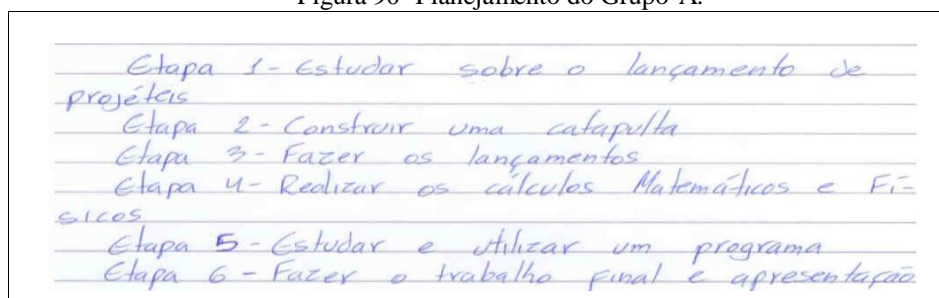 Figura 90- Planejamento do Grupo-A.
Etapa 1- Estudar sobre o lançamento de
projéteis
Etapa 2- Construir uma catapulta
Etapa 3- Fazer os lançamentos
Etapa 4- Realizar os cálculos Matemáticos e Fí-
sicos
Etapa 5- Estudar e utilizar um programa
Etapa 6- Fazer o trabalho final e apresentação